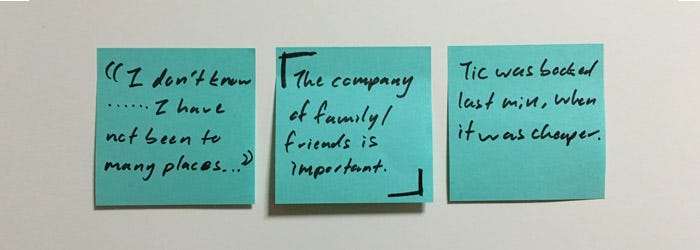 “I don't know
...... I have
not been to
many places...”
「The company
of family/
friends is
important.」
Tic was booked
last min, when
it was cheaper.